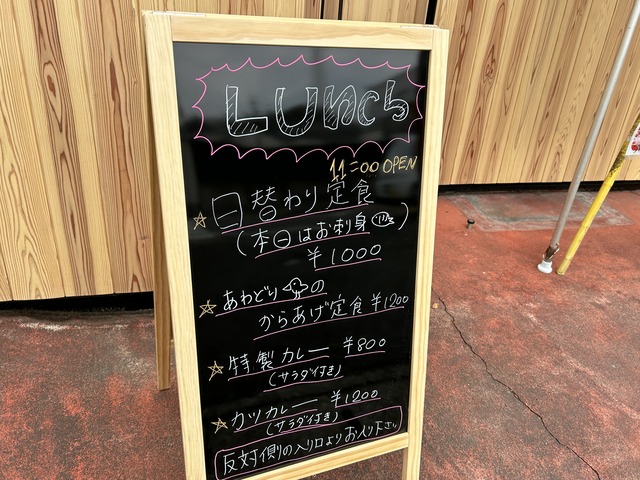 Lunch
11:00 OPEN
☆日替わり定食
(本日はお刺身)
¥1000
☆あわどりの
からあげ定食 ¥1200
☆特製カレー ¥800
(サラダ付き)
☆カツカレー ¥1200
(サラダ付き)
反対側の入り口よりお入り下さい